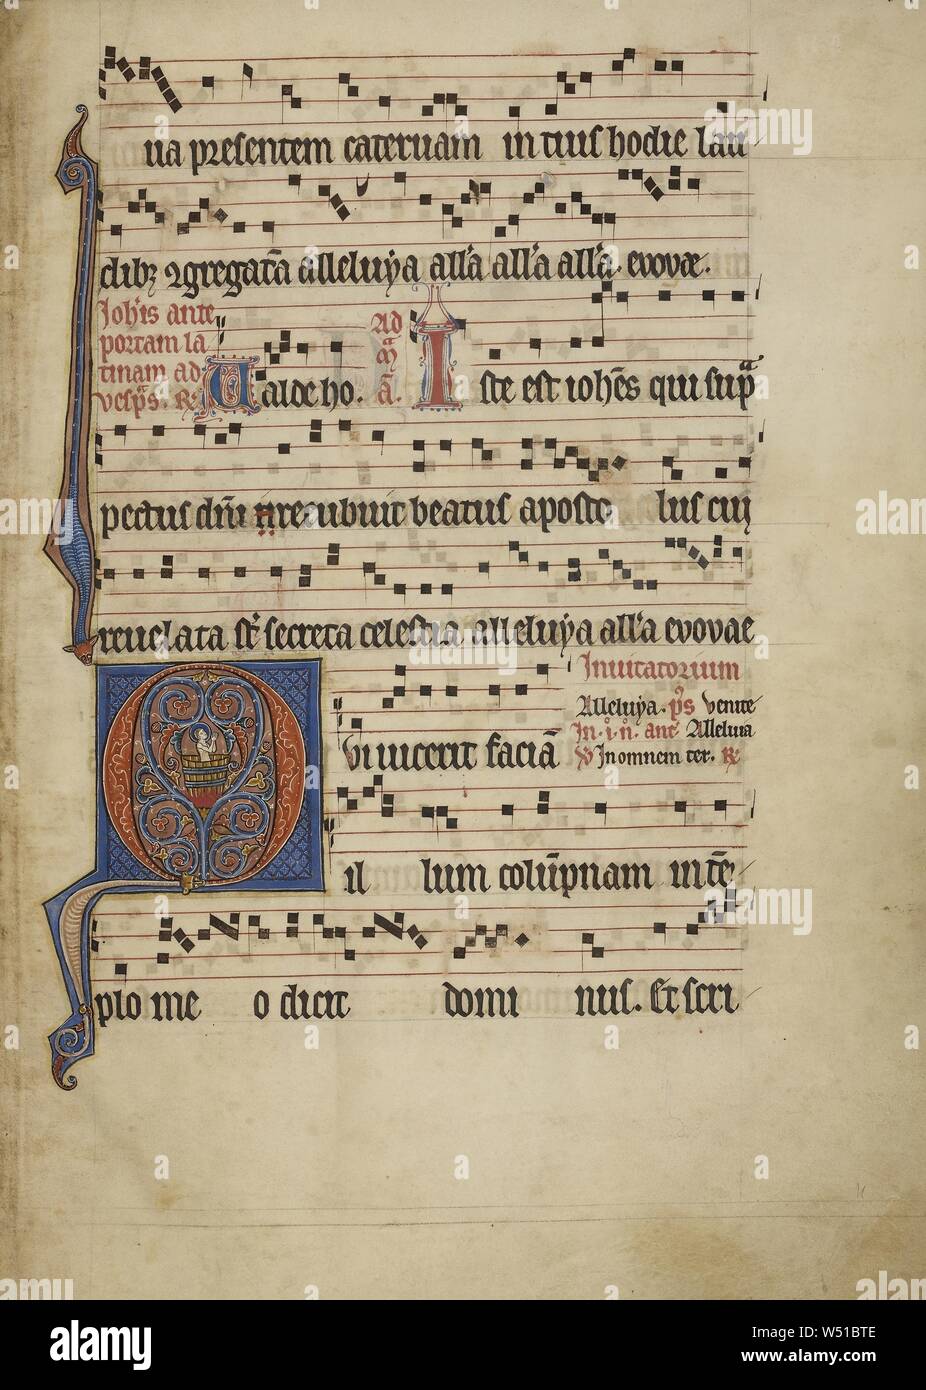 ua presentem cateruam in tius hodie lau
dibꝫ ꝯgregatā alleluẏa all'a all'a all'a. evovae.
Joh'is ante
portam la
tinam ad
vesp̄s. R
Ualde ho.
Ad
M
a.
Iste est ioh̄es qui sup̄
pectus dn̄i recubuit beatus aposto lus cui
reuelata st̄ secreta celestia alleluẏa all'a evovae
Inuitatorium
Alleluẏa. p̄s venite
In. j. n̊. ant' Alleluia
V In omnem ter. R
Qui uicerit faciā
il lum colūpnam in tē
plo me o dicit domi nus. Et scri
alamy
Image ID: W51BTE
www.alamy.com